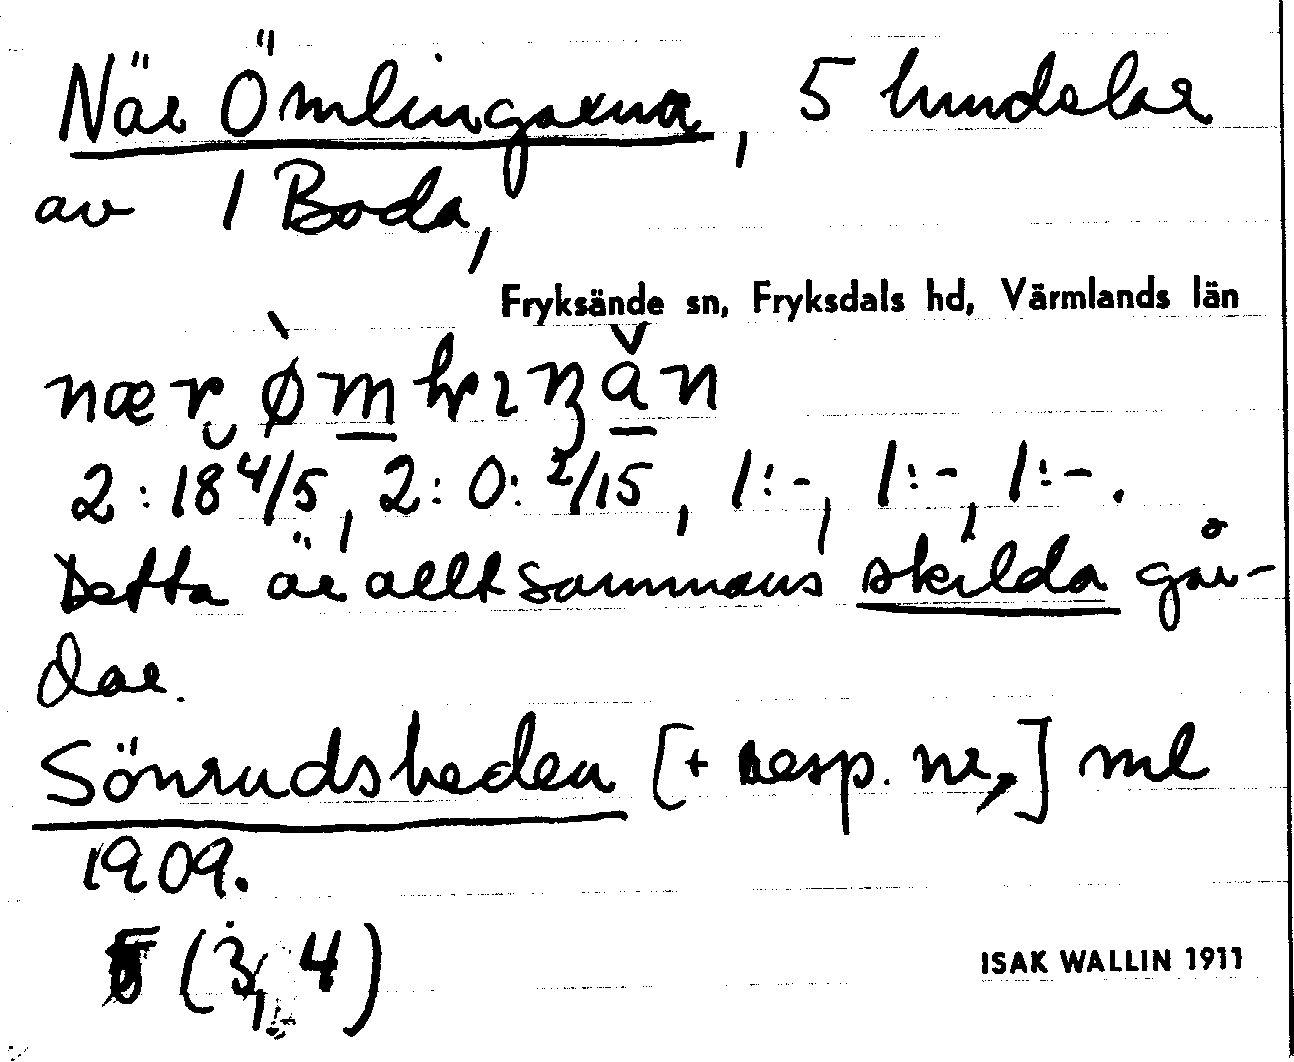 När Ömlingarna, 5 hundelar
av 1 Boda,
Fryksände sn, Fryksdals hd, Värmlands län
2:18 4/5, 2:0:2/15, 1:-, 1:-, 1:-.
Detta är allt sammans skilda går-
dar.
Sönrudsheden [+ resp. nr,] ml
1909.
(3, 4)
ISAK WALLIN 1911